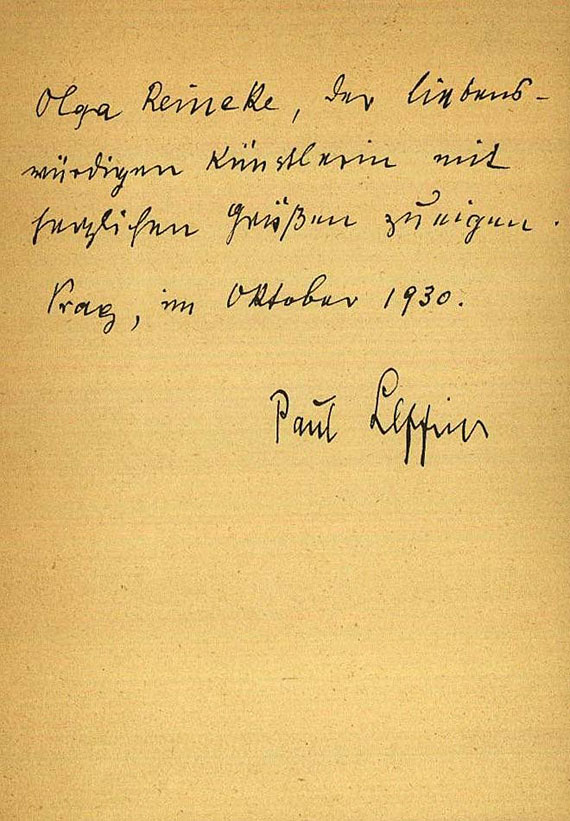 Olga Reineke, der liebens-
würdigen Künstlerin mit
herzlichen Grüßen zu eigen.
Prag, im Oktober 1930.
Paul Leppin